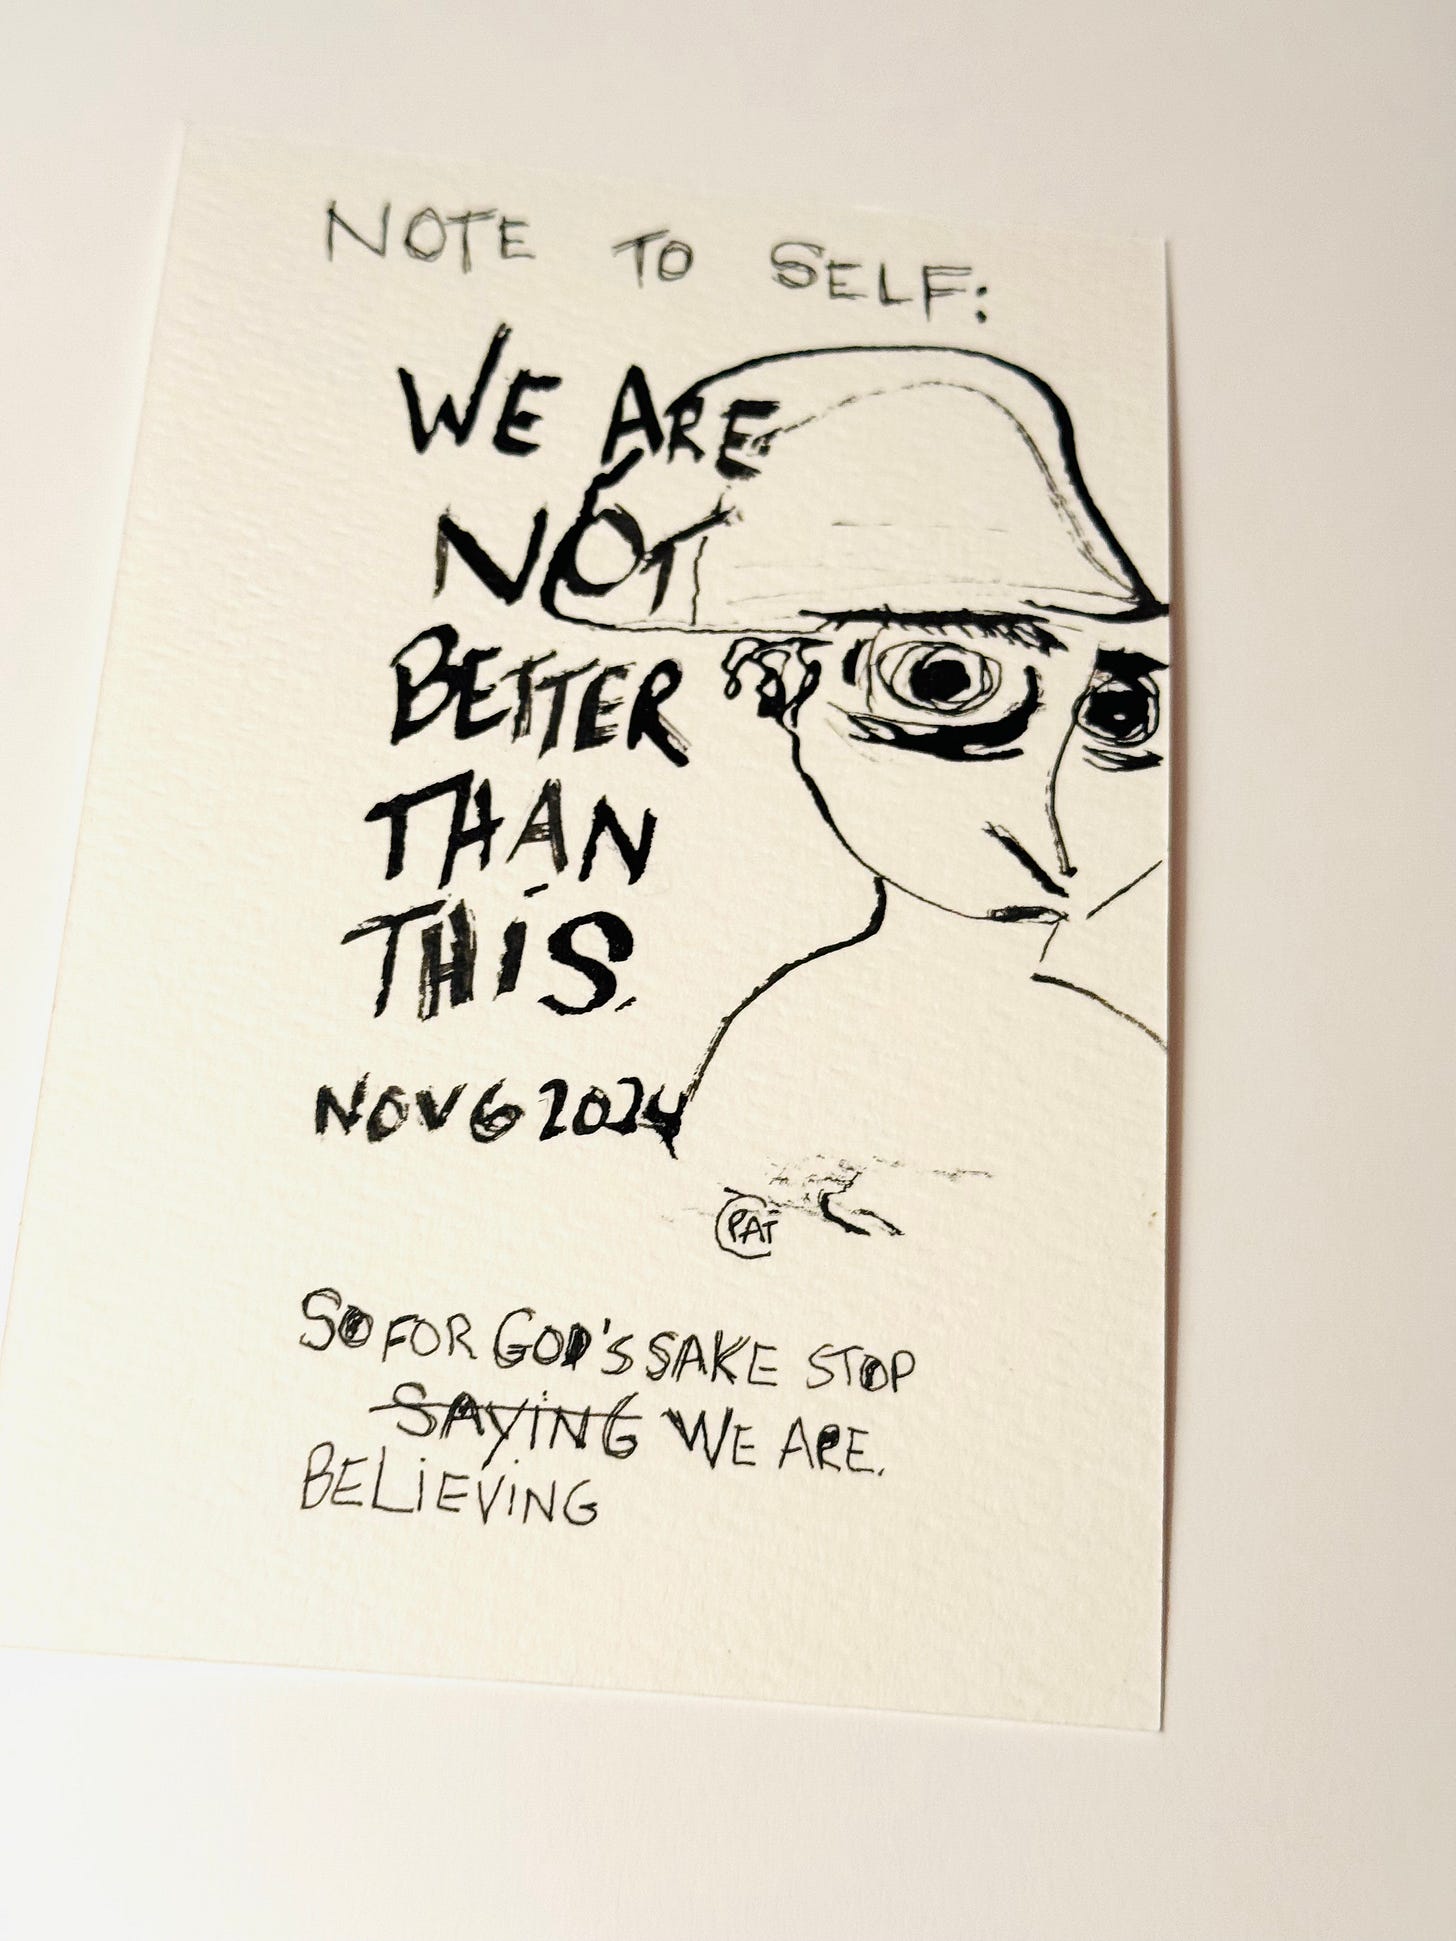 NOTE TO SELF:
WE ARE
NOT
BETTER
THAN
THIS.
NOV 6 2024
PAT
SO FOR GOD'S SAKE STOP
SAYING WE ARE.
BELIEVING